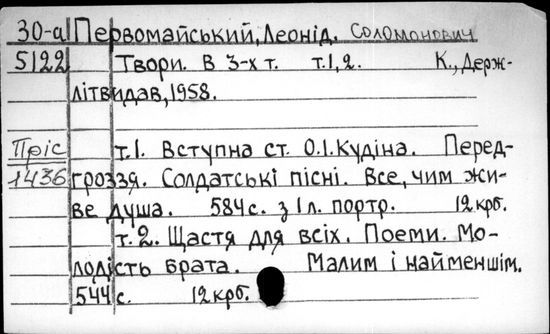 30-а Первомайський, Леонід. Соломонович
5122 Твори. В 3-х т. т.1, 2. К., Держ-
літвидав, 1958.
Пріс т.1. Вступна ст. О.І.Кудіна. Перед-
1436 гроззя. Солдатські пісні. Все, чим жи-
ве душа. 584 с. з 1 л. портр. 12 крб.
т. 2. Щастя для всіх. Поеми. Мо-
лодість брата. Малим і найменшім.
544 с. 12 крб.